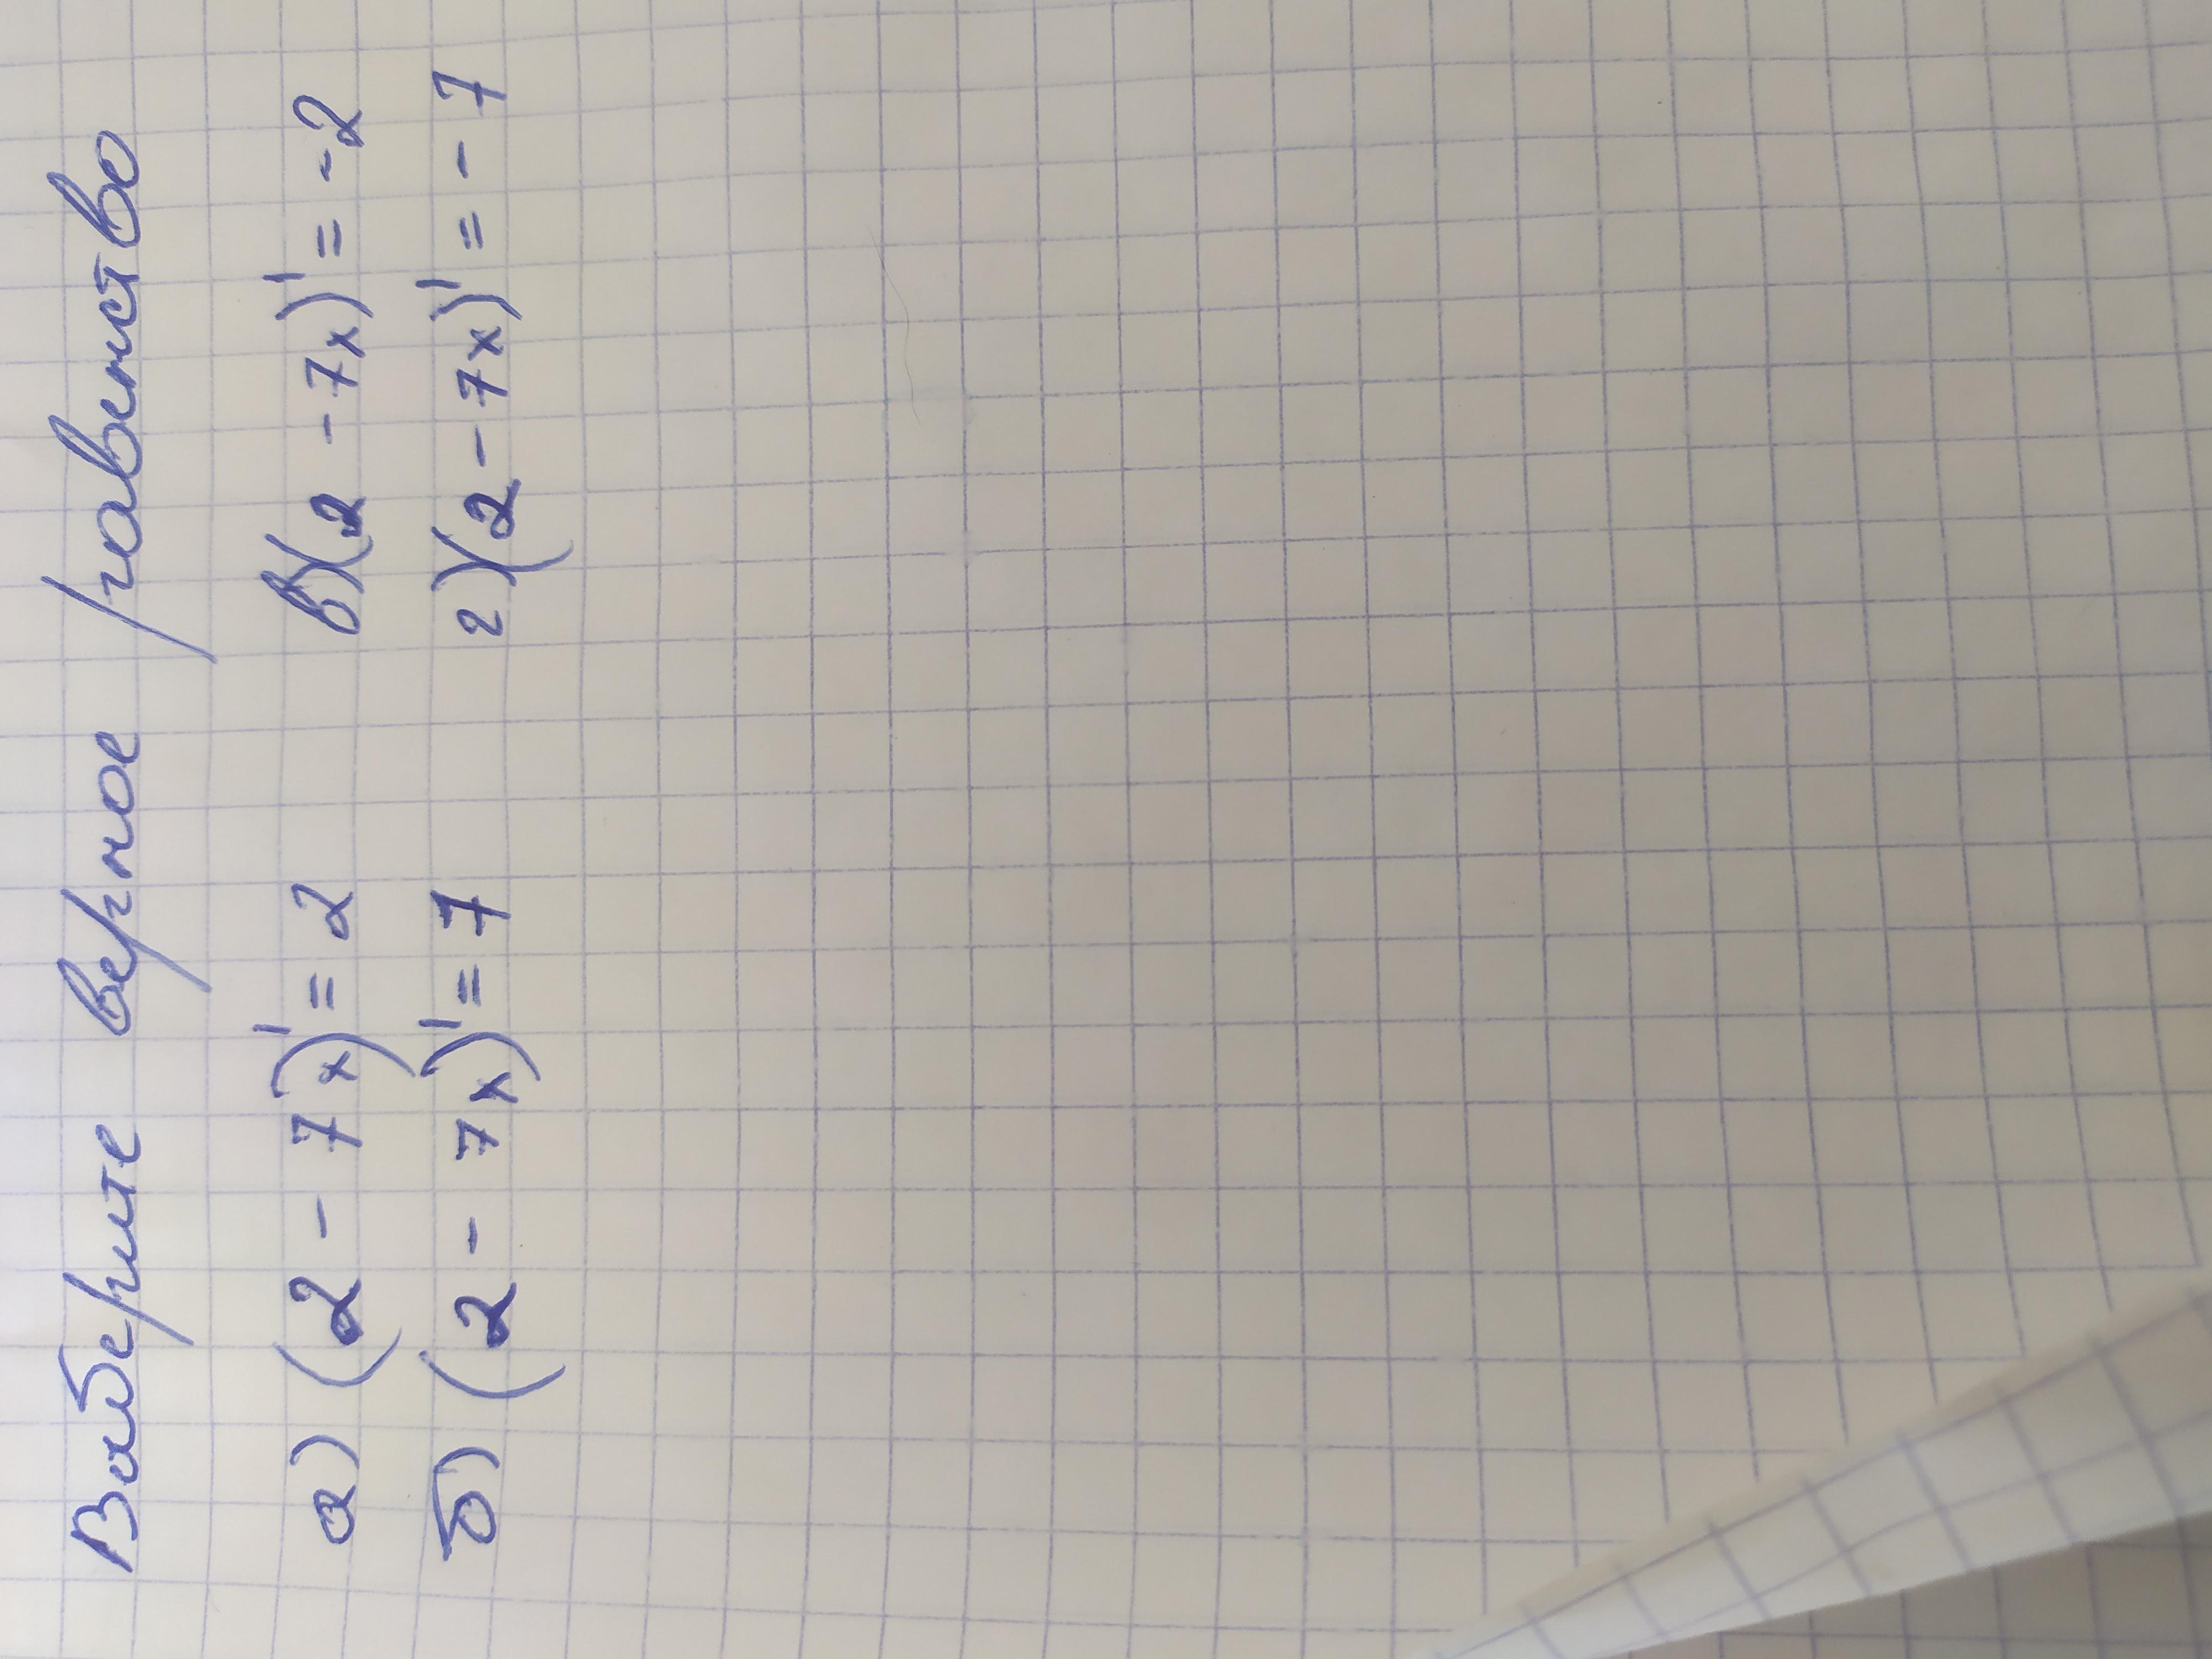 Выберите верное равенство
а) (2 - 7x)' = 2 в) (2 - 7x)' = -2
б) (2 - 7x)' = 7 г) (2 - 7x)' = -7